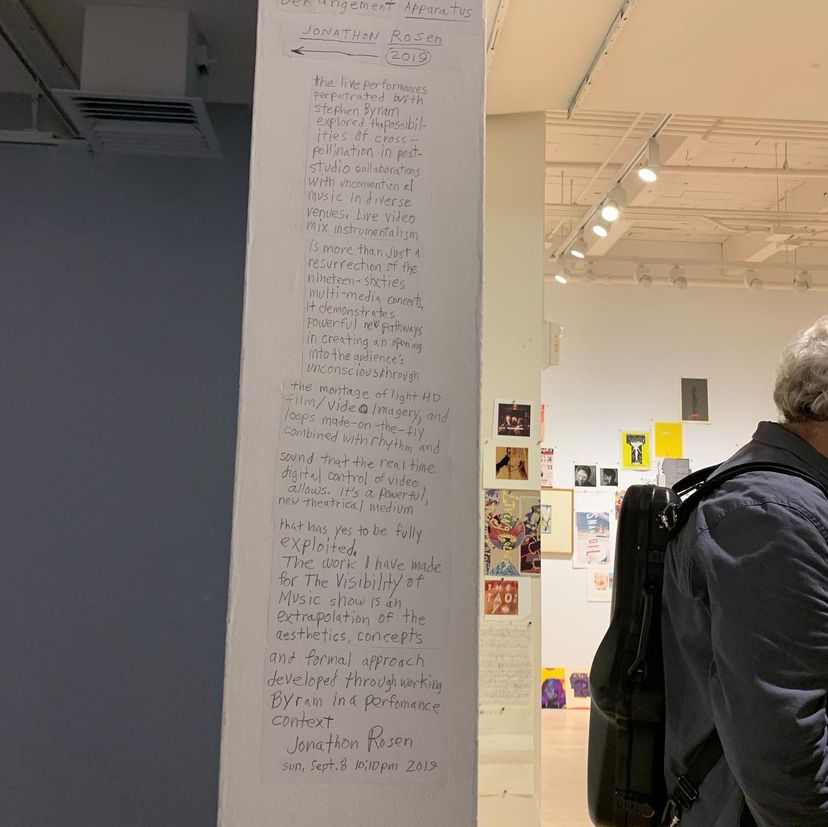 Derangement Apparatus
JONATHON ROSEN
2019
the live performances
perpetrated with
stephen Byram
explored the possibil-
ities of cross-
pollination in post-
studio collaborations
with unconventional
music in diverse
venues. Live video
mix instrumentalism
is more than just a
resurrection of the
nineteen-sixties
multi-media concert,
it demonstrates
powerful new pathways
in creating an opening
into the audience's
unconscious through
the montage of light HD
film/video Imagery, and
loops made-on-the-fly
combined with rhythm and
sound that the real time
digital control of video
allows. It's a powerful,
new theatrical medium
that has yes to be fully
exploited.
The work I have made
for The Visibility of
Music show is an
extrapolation of the
aesthetics, concepts
and formal approach
developed through working
Byram in a perfomance
context
Jonathon Rosen
sun, Sept. 8 10:10pm 2019
THE
TAO